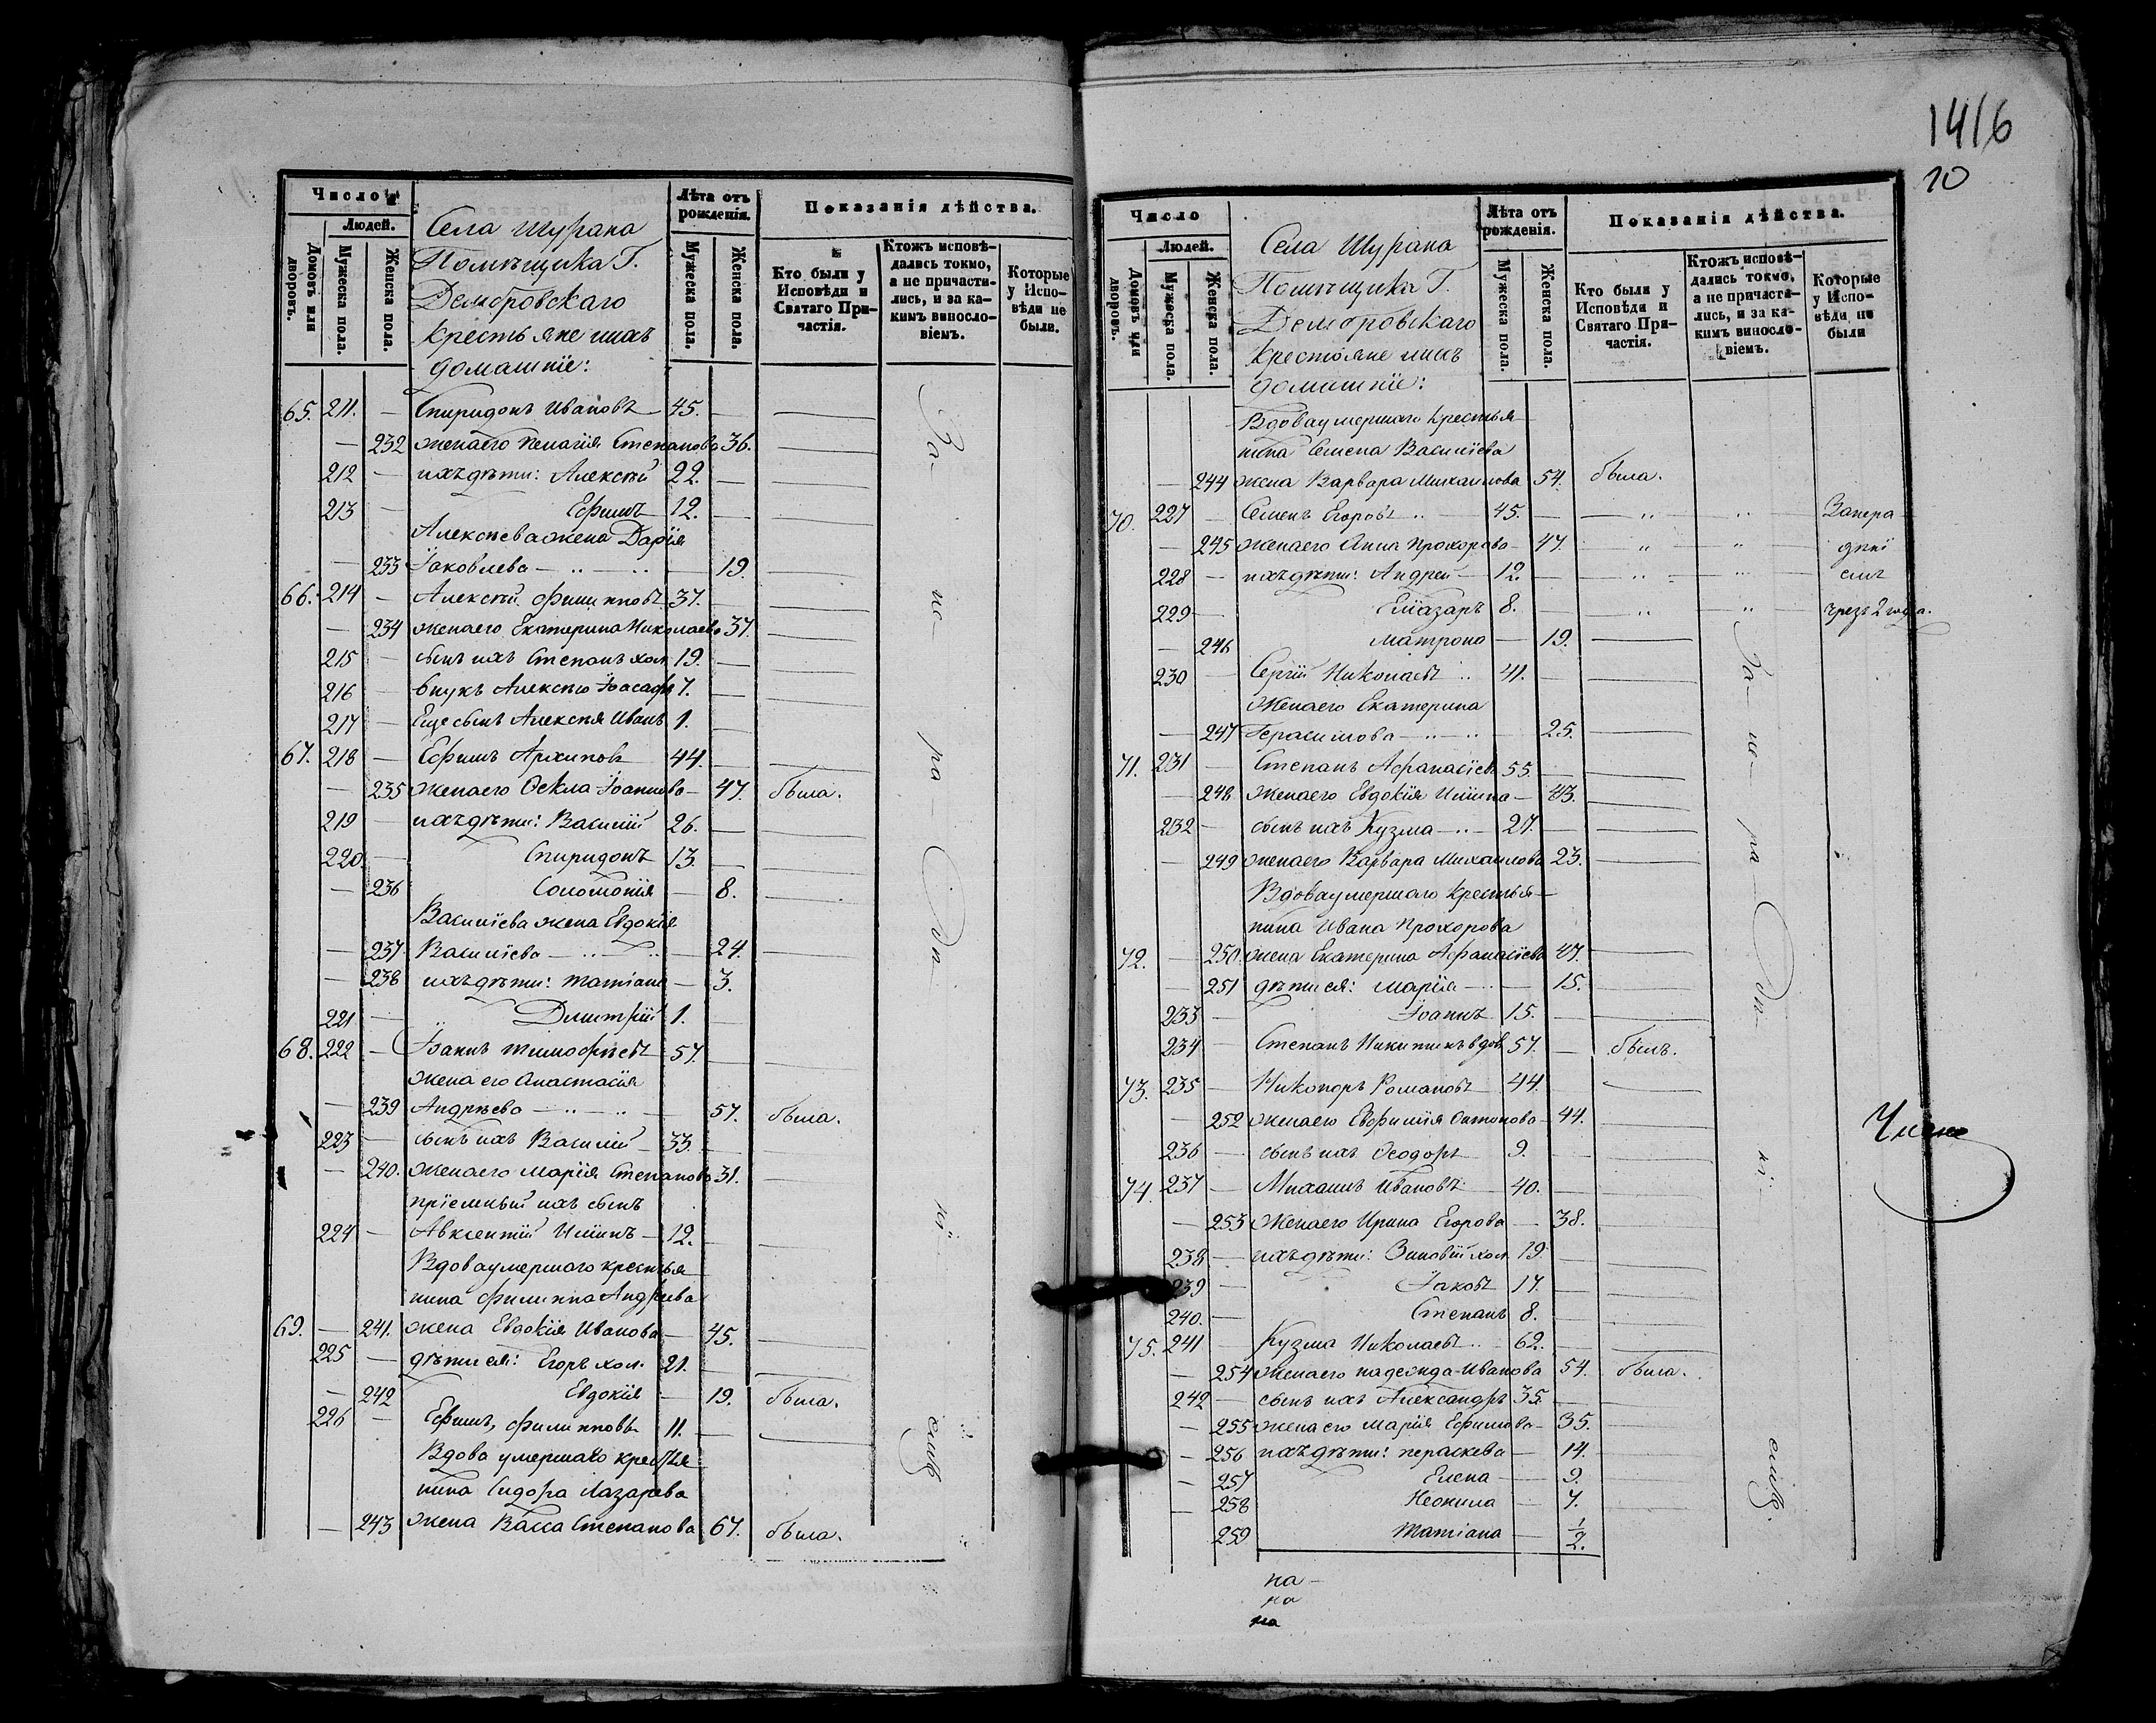 1416
10
Число
Людей.
Домовъ или дворовъ.
Мужеска пола.
Женска пола.
Села Шурана
Помѣщика Г.
Дембровскаго
крестьяне ихъ
домашніе:
Лѣта отъ рожденія.
Мужеска пола.
Женска пола.
Показанія дѣйства.
Кто были у Исповѣди и Святаго Причастія.
Ктожъ исповѣдались токмо, а не причастились, и за какимъ винословіемъ.
Которые у Исповѣди не были.
65. 211. — Спиридонъ Ивановъ — 45. —
— 232 жена его Пелагія Степанова 36.
212 — ихъ дѣти: Алексѣй 22. —
213 — Ефимъ 12. —
Алексѣева жена Дарія
— 233 Іаковлева — 19.
66. 214 — Алексѣй Филипповъ 37. —
— 234 жена его Екатерина Николаева 37.
215 — сынъ ихъ Степанъ хол. 19. —
216 — внукъ Алексѣю Іоасафъ 7. —
217 — Еще сынъ Алексѣя Иванъ 1. —
67. 218 — Ефимъ Архиповъ 44. —
— 235 жена его Ѳекла Іоаннова — 47. была.
219 — ихъ дѣти: Василій 26. —
220. — Спиридонъ 13. —
— 236 Соломонія — 8.
Василіева жена Евдокія
— 237 Василіева — 24.
— 238 ихъ дѣти: Татіана — 3.
221 — Димитрій 1. —
68. 222 — Іоаннъ Тимофѣевъ 57. —
жена его Анастасія
— 239 Андрѣева — 57. была.
223 — сынъ ихъ Василій 33. —
— 240. жена его Марія Степанова 31.
пріемный ихъ сынъ
224 — Авксентій Ильинъ — 12. —
Вдова умершаго крестья
нина Филиппа Андрѣева
69. — 241. жена Евдокія Иванова — 45.
225 — дѣти ея: Егоръ хол. 21. —
— 242 Евдокія — 19. была.
226 — Ефимъ, Филипповъ 11. —
Вдова умершаго крестья
нина Сидора Лазарева
— 243 жена Васса Степанова 67. была.
За-
не-
ра
Дѣ
ні
емъ
Число
Людей.
Домовъ или дворовъ.
Мужеска пола.
Женска пола.
Села Шурана
Помѣщика Г.
Дембровскаго
крестьяне ихъ
домашніе:
Лѣта отъ рожденія.
Мужеска пола.
Женска пола.
Показанія дѣйства.
Кто были у Исповѣди и Святаго Причастія.
Ктожъ исповѣдались токмо, а не причастились, и за какимъ винословіемъ.
Которые у Исповѣди не были
Вдова умершаго крестья
нина Семена Василіева
— 244 жена Варвара Михаилова 54. была.
70. 227 — Семенъ Егоровъ .. 45. — „ — „ — Занера
— 245 жена его Анна Прохорова — 47. — „ — „ — дѣні
228 — ихъ дѣти: Андрей — 12. — „ — „ — емъ
229 — Еліазаръ 8. — „ — „ — чрезъ 2 года.
— 246 Матрона — 19.
230 — Сергій Николаевъ .. 41. —
Жена его Екатерина
— 247 Герасимова — 25.
71. 231 — Степанъ Афанасіевъ 55. —
— 248 Жена его Евдокія Ильина — 43.
232 — сынъ ихъ Кузма — 27. —
— 249 жена его Варвара Михаилова 23.
Вдова умершаго крестья—
нина Ивана Прохорова
72. — 250 жена Екатерина Афанасіева 47.
— 251 дѣти ея: Марія — 15.
233 — Іоаннъ 15. —
234 — Степанъ Никитинъ вдов. 57. — былъ.
73. 235 — Никоноръ Романовъ 44. —
— 252 жена его Евфимія Антонова — 44.
236 — сынъ ихъ Ѳеодоръ 9. —
74. 237 — Михаилъ Ивановъ — 40. —
— 253 Жена его Ирина Егорова — 38.
238 — ихъ дѣти: Зиновій хол. 19. —
239 — Іаковъ 17. —
240. — Степанъ 8. —
75. 241 — Кузма Николаевъ .. 62. —
— 254 Жена его Надежда Иванова 54. была.
242 — сынъ ихъ Александръ 35. —
— 255 жена его Марія Ефимова — 35.
— 256 ихъ дѣти: Параскева — 14.
— 257 Елена — 9.
— 258 Неонила — 7.
259 Татіана — 1/2.
За-
не-
ра
Дѣ-
ні-
емъ.
на-
на
на